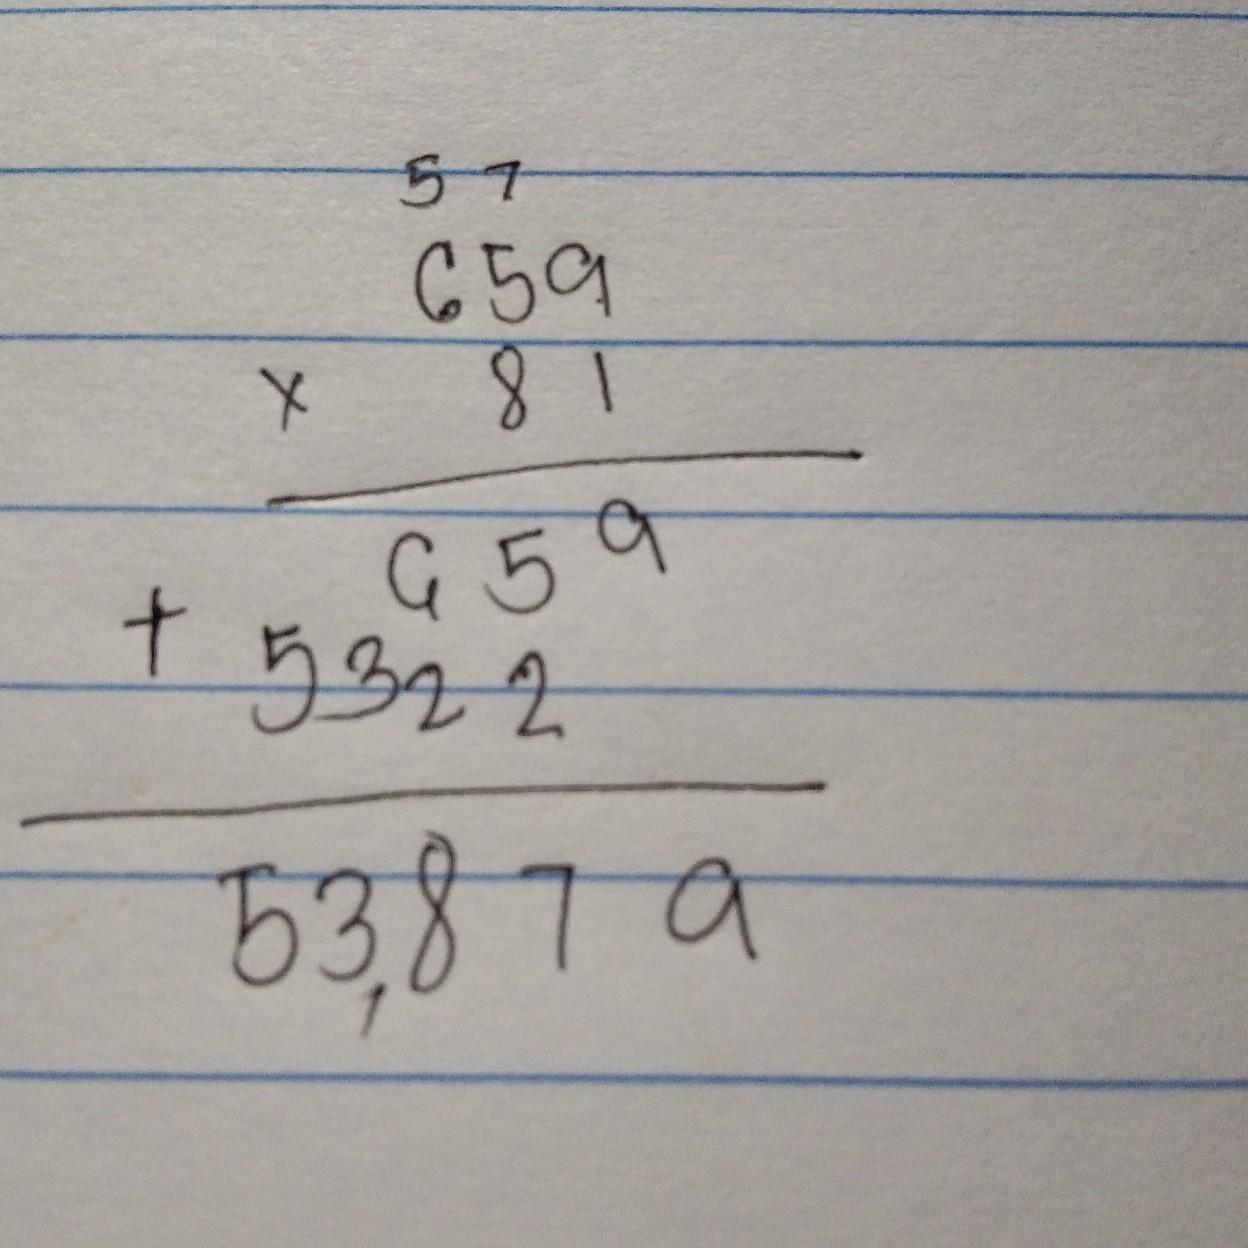 5 7
659
x 81
659
+ 5322
53,879